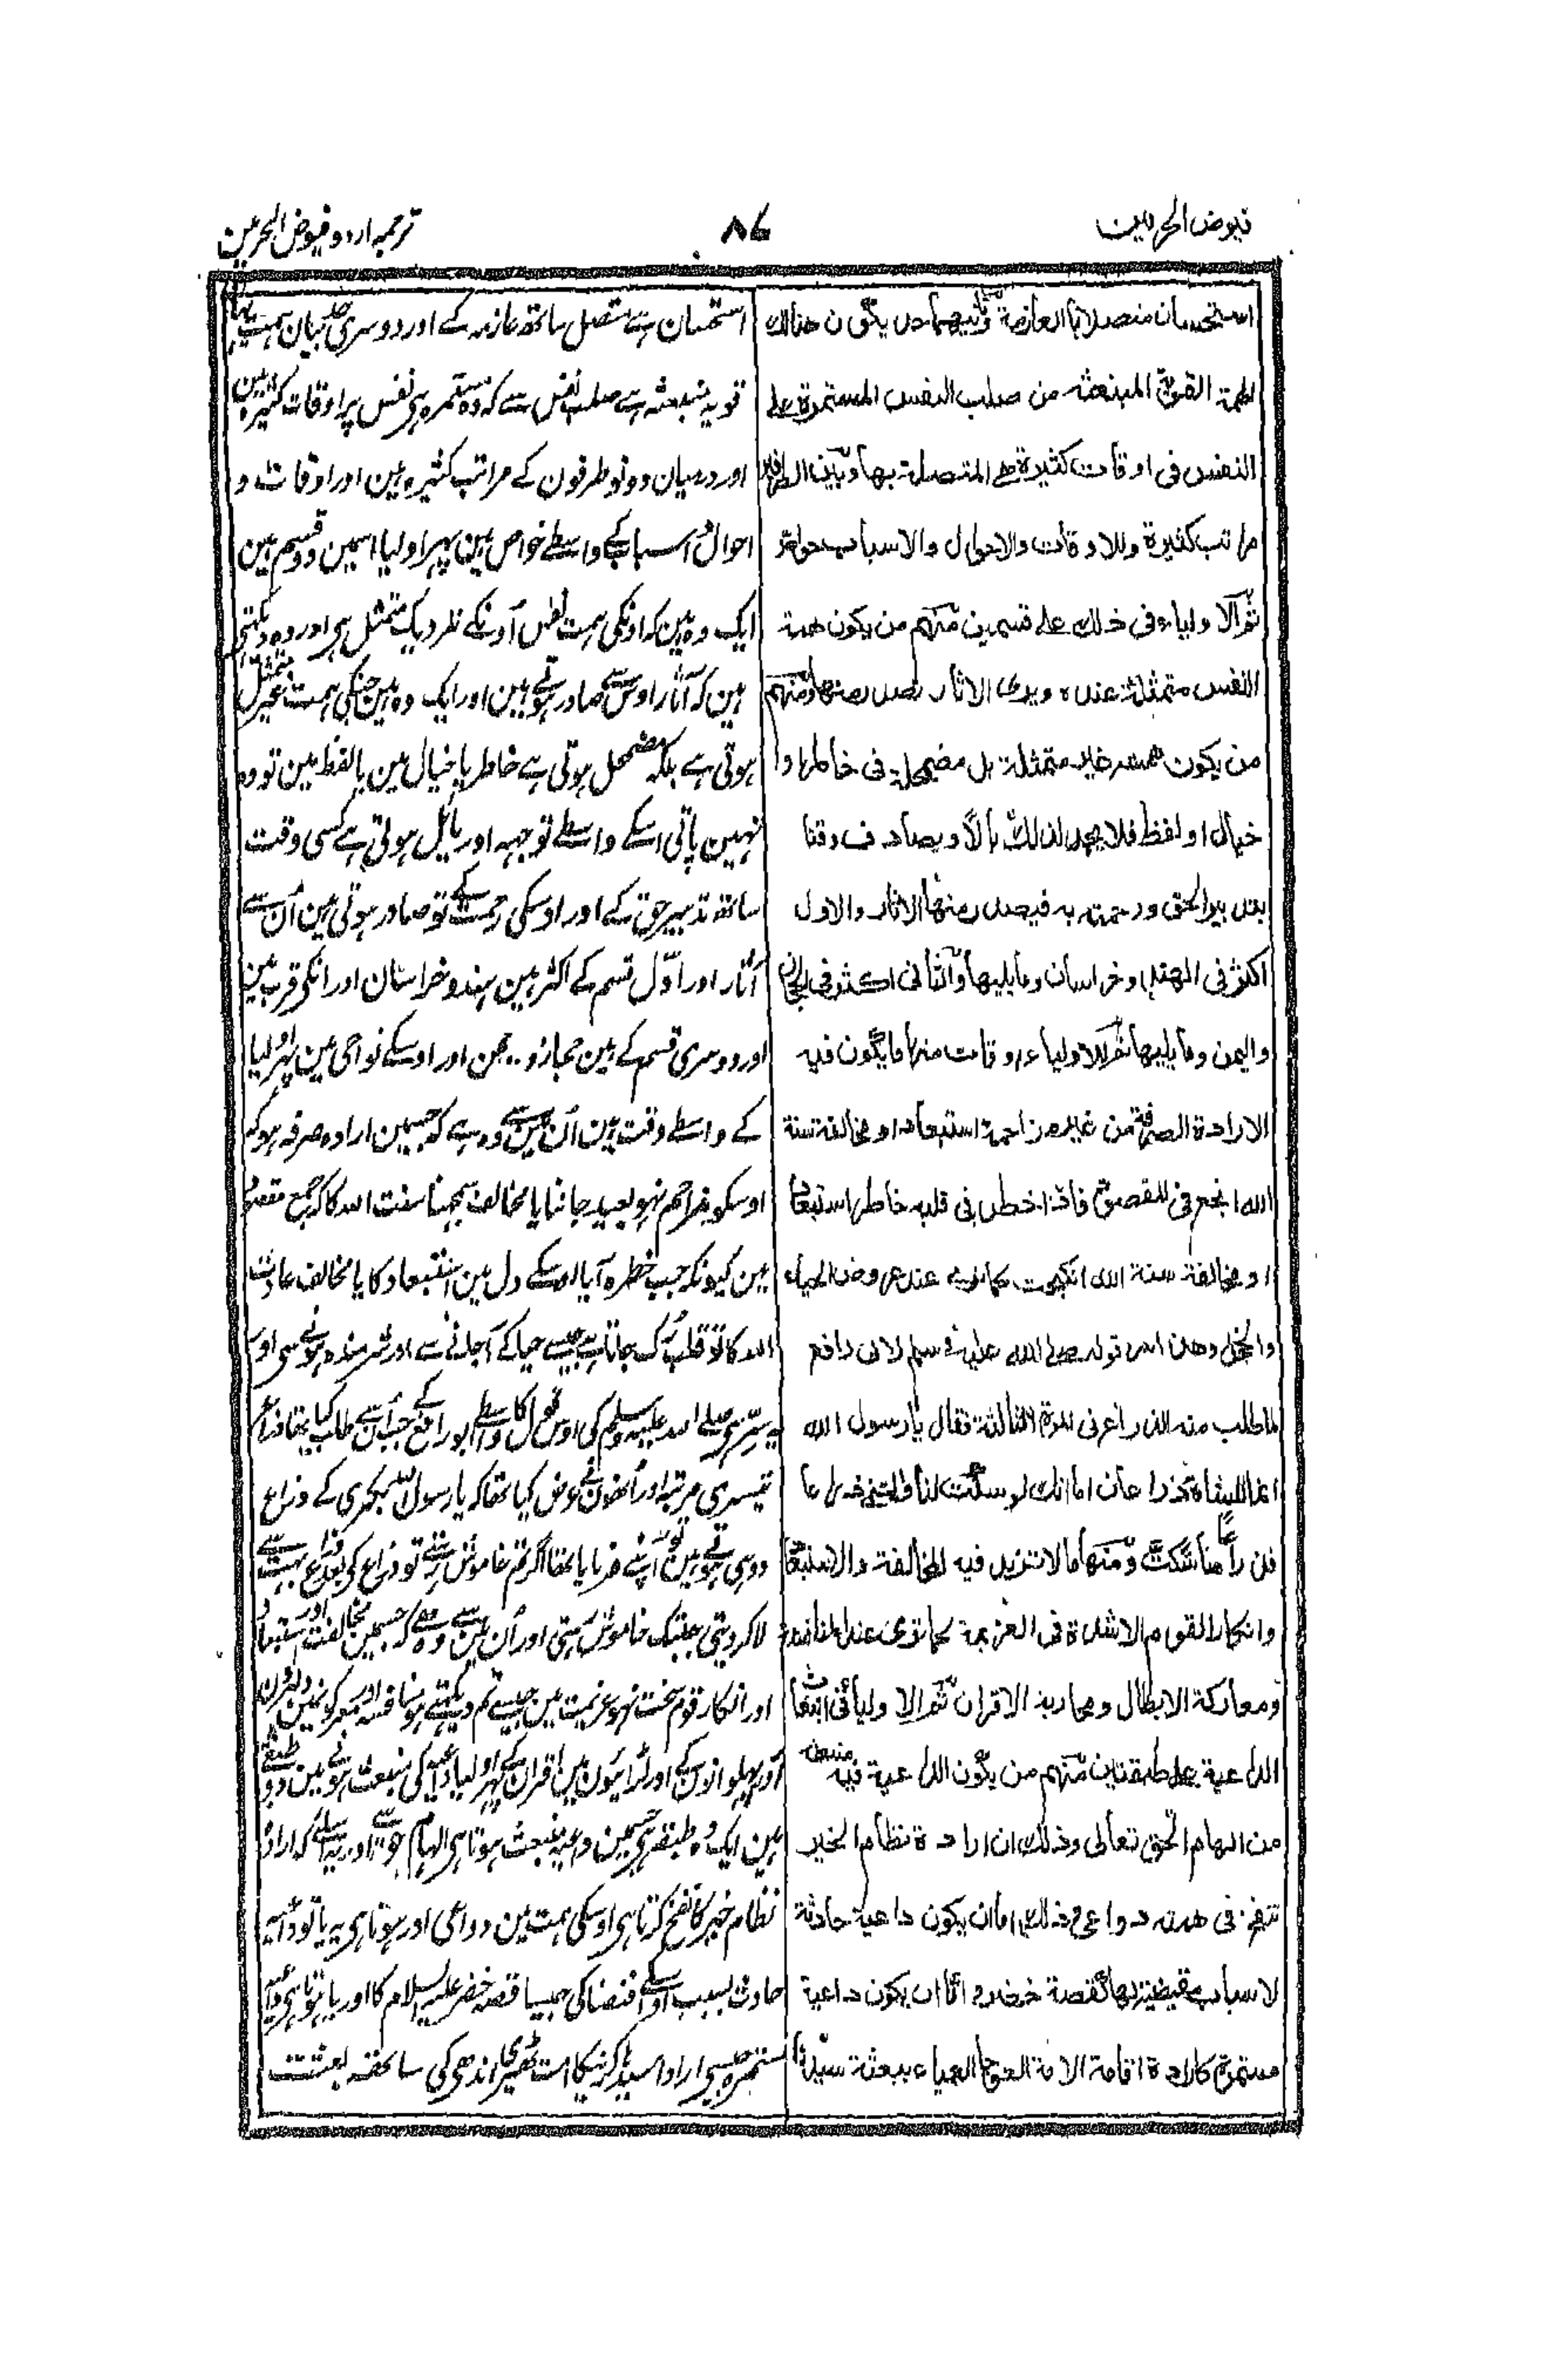 فیوض الحرمین
۸۷
ترجمہ اردو فیوض الحرمین
استحسان متصلا بالعازمة وثانيهما حين يكون هنالك
الهمة القوية المنبعثة من صلب النفس المستمرة على
النفس فى اوقات كثيرة المتصلة بها وبين الطرفين
مراتب كثيرة وللاوقات والاحوال والاسباب خواص
ثم الاولياء فى ذلك على قسمين منهم من يكون همة
النفس متمثلة عنده ويرى الاثار تصدر منها ومنهم
من يكون همته غير متمثلة بل مضمحلة فى خاطر او
خيال او لفظ فلا يجد لذلك بالا ويصادف وقتا
بتدبير الحق ورحمته به فيصدر منها الاثار والاول
اكثر فى الهند وخراسان وما يليها والثانى اكثر فى الحجاز
واليمن وما يليها ثم للاولياء اوقات منها ما يكون فيه
الارادة الصرفة من غير مزاحمة استبعاد او مخالفة سنة
الله انجع فى المقصود فاذا خطر فى قلبه خاطر استبعاد
او مخالفة سنة الله انكبحت كما ترى عند عروض الحياء
والخجل وهذا سر قوله صلى الله عليه وسلم لابى رافع
لما طلب منه الذراع فى المرة الثالثة فقال يا رسول الله
انما للشاة ذراعان اما انك لو سكت لناولتنى ذراعا
فذراعا ما سكت ومنها ما لا تزيد فيه المخالفة والاستبعاد
وانكار القوم الا شدة فى العزيمة كما ترى عند المنافسة
ومعاركة الابطال ومحاربة الاقران ثم الاولياء فى انبعاث
الداعية على طبقتين منهم من يكون الداعية فيه منبعث
من الهام الحق تعالى وذلك ان ارادة نظام الخير
تنفخ فى همته دواعى وذلك اما ان يكون داعية حادثة
لاسباب مقتضية لها كقصة خضر واما ان يكون داعية
مستمرة كارادة اقامة الامة العوجاء العمياء ببعثة سيدنا
استحسان ہے متصل ساتھ عازمہ کے اور دوسری جبکہ بیان ہمت
قویہ منبعثہ ہے صلب نفس سے کہ وہ مستمرہ ہی نفس پر اوقات کثیرہ مین
اور درمیان دونو طرفون کے مراتب کثیرہ ہین اور اوقات و
احوال و اسباب کے واسطے خواص ہین پہر اولیا اسمین دو قسم ہین
ایک وہ ہین کہ اونکی ہمت نفس اونکے نزدیک متمثل ہی اور وہ دیکھتے
ہین کہ آثار اوس سے صادر ہوتے ہین اور ایک وہ ہین جنکی ہمت غیر متمثل
ہوتی ہے بلکہ مضمحل ہوتی ہے خاطر یا خیال مین یا لفظ مین تو وہ
نہین پاتی اسکے واسطے توجہہ اور مائل ہوتی ہے کسی وقت
ساتھ تدبیر حق کے اور اوسکی رحمت کے تو صادر ہوتی ہین اُن سے
آثار اور اوّل قسم کے اکثر ہین ہند و خراسان اور انکی قرب مین
اور دوسری قسم کے ہین حجاز و یمن اور اوسکے نواحی مین پہر اولیا
کے واسطے وقت ہین اُن مین سے وہ ہے کہ جسمین ارادہ صرفہ ہو کہ
اوسکو مزاحم نہو بعید جاننا یا مخالف سمجہنا سنت اللہ کا کہ انجع مقصود
مین کیونکہ جب خطرہ آیا اسکے دل مین استبعاد کا یا مخالف عادت
اللہ کا تو قلب رک جاتا ہے جیسے حیا کے آجانے سے اور شرمندہ ہونے سی اور
یہ سِرّ ہی صلے اللہ علیہ وسلم کی اوس قول کا واسطے ابو رافع کے جب اُن سے طلب کیا تھا ذراع
تیسری مرتبہ اور اُنھون نے عرض کیا تھا کہ یا رسول اللہ بکری کے ذراع
دو ہی ہوتے ہین تو آپنے فرمایا تھا اگر تم خاموش رہتے تو ذراع کی بعد ذراع بہت سے
لاکر دیتی جبتک خاموش رہتی اور اُن مین سے وہ ہے کہ جسمین مخالفت اور استبعاد
اور انکار قوم سخت نہو عزیمت مین جیسے تم دیکہتے ہو منافسہ اور معرکونمین دلیرون
اور پہلوانون کے اور لڑائیون مین اقران کے پہر اولیا داعیہ کی منبعث ہونے مین دو طبقے
ہین ایک وہ طبقہ ہی جسمین داعیہ منبعث ہوتا ہی الہام حق سے اور یہ اسلئے کہ ارادہ
نظام خیر کا نفخ کرتا ہی اوسکی ہمت مین دواعی اور ہوتا ہی یہ یا تو داعیہ
حادث بسبب اوسکے اقتضا کی جیسا قصہ خضر علیہ السلام کا اور یا ہوتا ہی داعیہ
مستمرہ جیسی ارادا سیدہا کرنیکا امت ٹیڑھی اندھی کی ساتھ بعثت